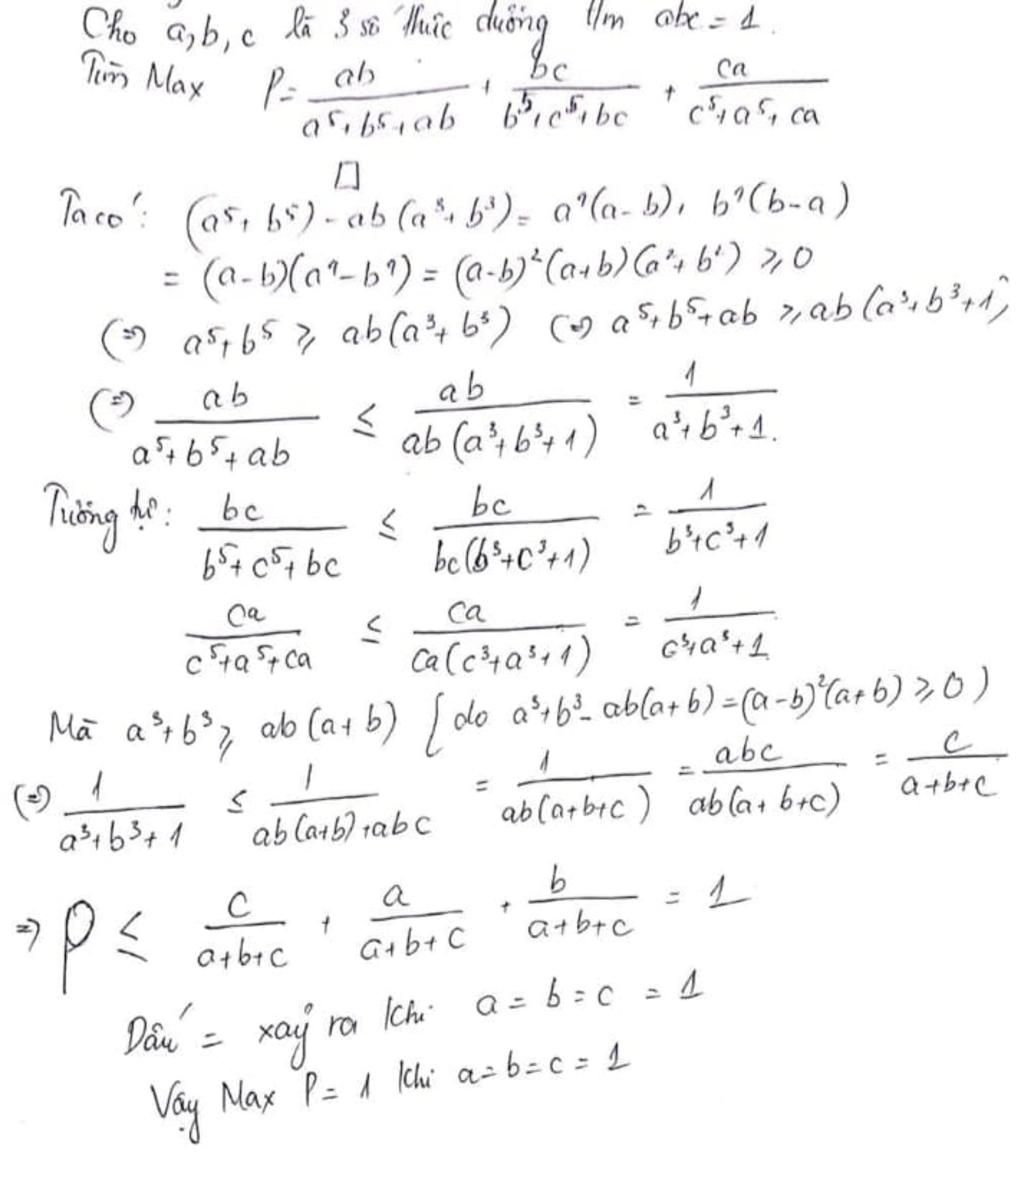 Cho a, b, c là 3 số thực dương t/m abc = 1.
Tìm Max P = ab/(a⁵+b⁵+ab) + bc/(b⁵+c⁵+bc) + ca/(c⁵+a⁵+ca)
Ta có: (a⁵+b⁵) - ab(a³+b³) = a⁴(a-b) + b⁴(b-a)
= (a-b)(a⁴-b⁴) = (a-b)²(a+b)(a²+b²) ≥ 0
(=) a⁵+b⁵ ≥ ab(a³+b³) (=) a⁵+b⁵+ab ≥ ab(a³+b³+1)
(=) ab/(a⁵+b⁵+ab) ≤ ab/(ab(a³+b³+1)) = 1/(a³+b³+1).
Tương tự: bc/(b⁵+c⁵+bc) ≤ bc/(bc(b³+c³+1)) = 1/(b³+c³+1)
ca/(c⁵+a⁵+ca) ≤ ca/(ca(c³+a³+1)) = 1/(c³+a³+1)
Mà a³+b³ ≥ ab(a+b) (do a³+b³-ab(a+b) = (a-b)²(a+b) ≥ 0)
(=) 1/(a³+b³+1) ≤ 1/(ab(a+b)+abc) = 1/(ab(a+b+c)) = abc/(ab(a+b+c)) = c/(a+b+c)
=> P ≤ c/(a+b+c) + a/(a+b+c) + b/(a+b+c) = 1
Dấu = xảy ra khi a = b = c = 1
Vậy Max P = 1 khi a = b = c = 1